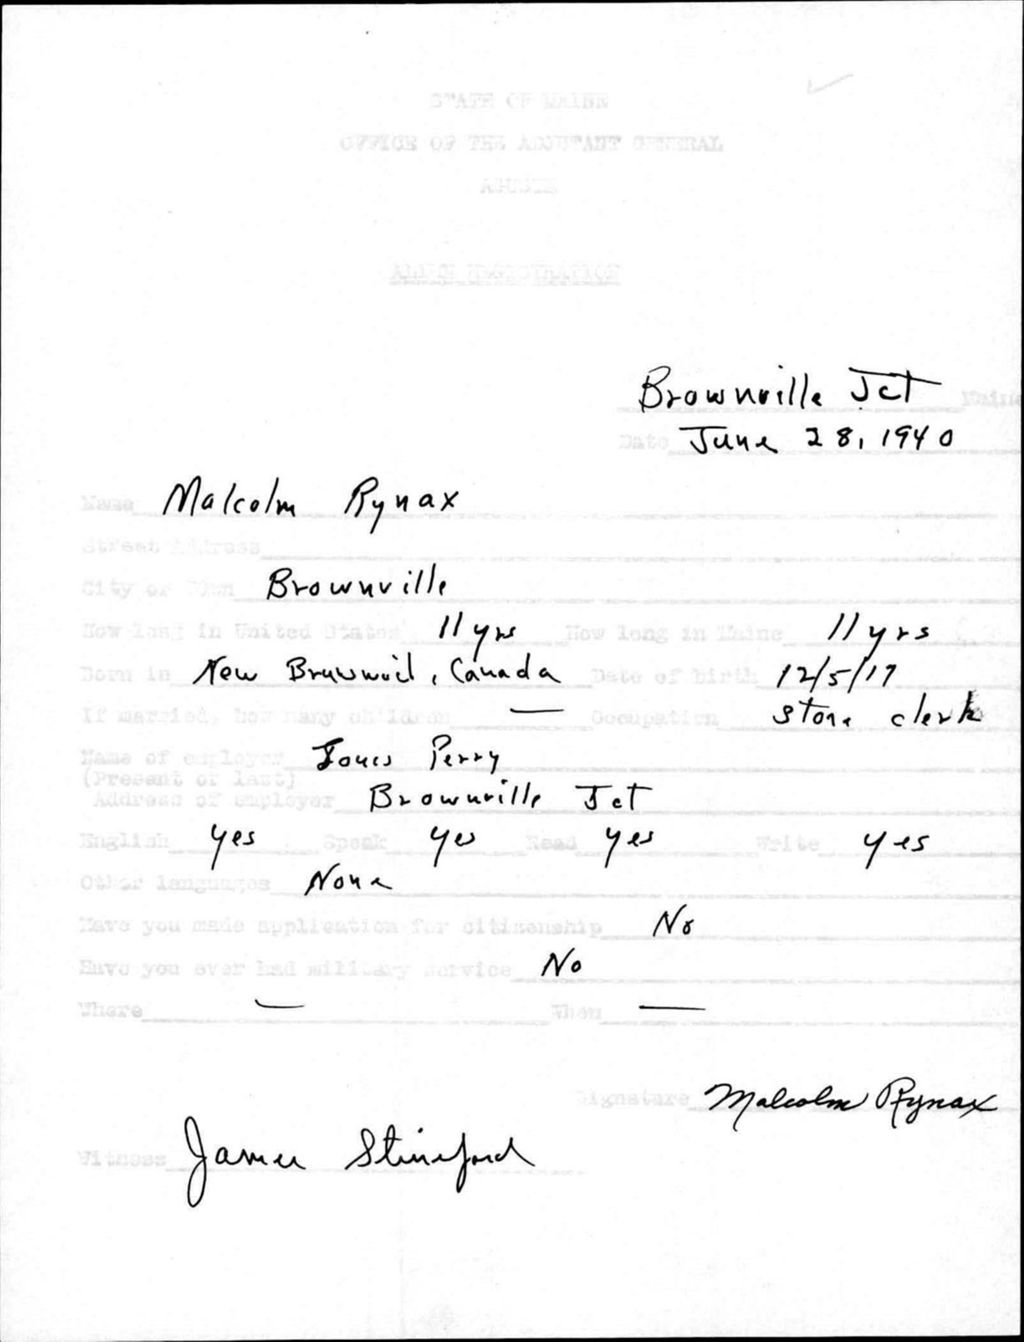 STATE OF MAINE
OFFICE OF THE ADJUTANT GENERAL
AUGUSTA
ALIEN REGISTRATION
Brownville Jct Maine
Date June 28, 1940
Name Malcolm Rynax
Street Address
City or Town Brownville
How long in United States 11 yrs How long in Maine 11 yrs
Born in New Brunswick, Canada Date of birth 12/5/17
If married, how many children — Occupation store clerk
Name of employer Perry
(Present or last)
Address of employer Brownville Jct
English yes Speak yes Read yes Write yes
Other languages None
Have you made application for citizenship No
Have you ever had military service No
Where — When —
Signature Malcolm Rynax
Witness James Stineford